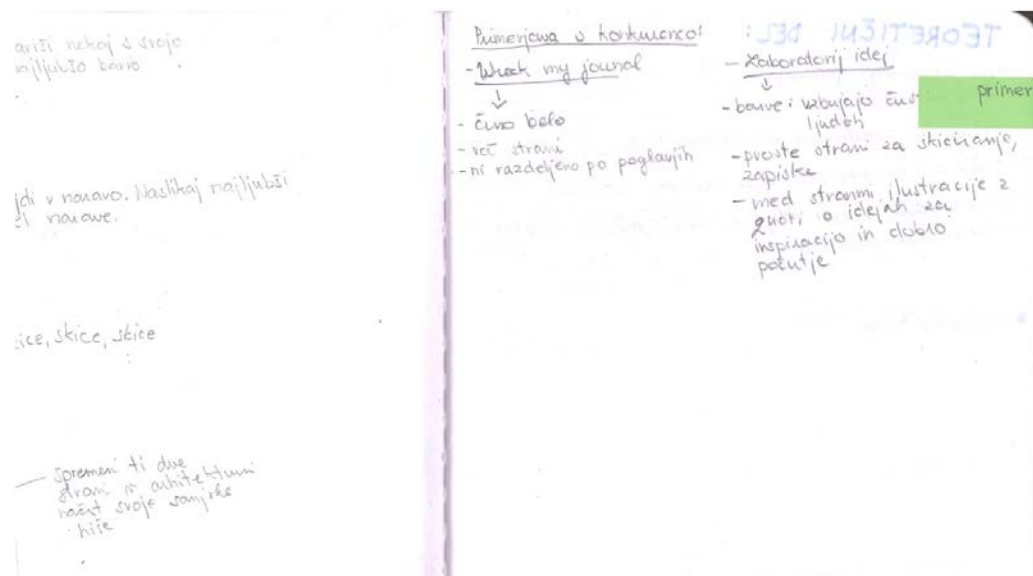 nariši nekaj s svojo
najljubšo barvo
jdi v naravo. Naslikaj najljubši
del narave.
ice, skice, skice
— spremeni ti dve
strani v arhitekturni
načrt svoje sanjske
hiše
Primerjava s konkurenco:
- Wreck my journal
- črno belo
- več strani
- ni razdeljeno po poglavjih
TEORETIČNI DEL:
- Laboratorij idej
- barve: vzbujajo čus
ljudeh
primer
- proste strani za skiciranje,
zapiske
- med stranmi ilustracije z
quoti o idejah za
inspiracijo in dobro
počutje